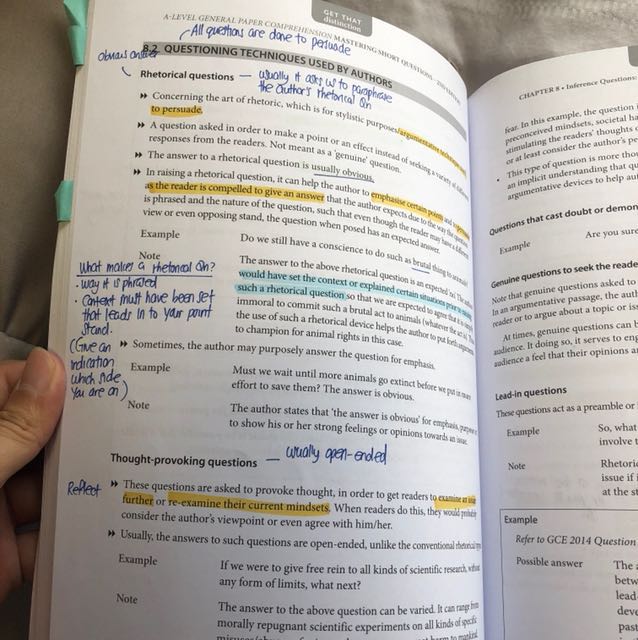 GET THAT
distinction
A-LEVEL GENERAL PAPER COMPREHENSION MASTERING SHORT QUESTIONS - 2ND EDITION
All questions are done to persuade
8.2 QUESTIONING TECHNIQUES USED BY AUTHORS
obvious answer
Rhetorical questions — usually it asks us to paraphrase
the author's rhetorical Qn
Concerning the art of rhetoric, which is for stylistic purposes,
to persuade.
A question asked in order to make a point or an effect instead of seeking a variety of
responses from the readers. Not meant as a 'genuine' question.
The answer to a rhetorical question is usually obvious.
In raising a rhetorical question, it can help the author to emphasise certain points and
as the reader is compelled to give an answer that the author expects due to the way the question
is phrased and the nature of the question, such that even though the reader may have a different
view or even opposing stand, the question when posed has an expected answer.
Example
Do we still have a conscience to do such as brutal thing to
Note
The answer to the above rhetorical question is an expected
would have set the context or explained certain situations prior to
such a rhetorical question so that we are expected to agree that it is
immoral to commit such a brutal act to animals (whatever the act is).
the use of such a rhetorical device helps the author to put forth
to champion for animal rights in this case.
What makes a rhetorical Qn?
• way it is phrased
• Content must have been set
that leads in to your point
stand.
(Give an
indication
which side
you are on)
Sometimes, the author may purposely answer the question for emphasis.
Example
Must we wait until more animals go extinct before we put in more
effort to save them? The answer is obvious.
Note
The author states that 'the answer is obvious' for emphasis,
to show his or her strong feelings or opinions towards an issue.
Thought-provoking questions — usually open-ended
Reflect
These questions are asked to provoke thought, in order to get readers to examine an issue
further or re-examine their current mindsets. When readers do this, they would probably
consider the author's viewpoint or even agree with him/her.
Usually, the answers to such questions are open-ended, unlike the conventional rhetorical
Example
If we were to give free rein to all kinds of scientific research, without
any form of limits, what next?
Note
The answer to the above question can be varied. It can range from
morally repugnant scientific experiments on all kinds of specific
CHAPTER 8 • Inference Questions
fear. In this example, the question
preconceived mindsets, societal
stimulating the readers' thoughts
or at least consider the author's
• This type of question is more
an implicit understanding that
argumentative devices to help
Questions that cast doubt or
Example
Are you sure
Genuine questions to seek the
Note that genuine questions asked to
In an argumentative passage, the
reader or to argue about a topic or
At times, genuine questions can
audience. In doing so, it serves to
audience feel that their opinions
Lead-in questions
These questions act as a preamble or
Example
So, what
involve
Note
issue if
at the
Example
Refer to GCE 2014 Question
Possible answer
The
lead-
past